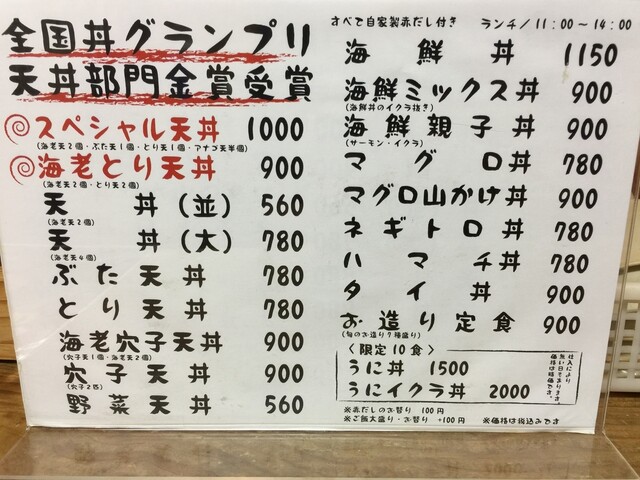 全国丼グランプリ
天丼部門金賞受賞
スペシャル天丼 1000
(海老天2個・ぶた天1個・とり天1個・アナゴ天半個)
海老とり天丼 900
(海老天2個・とり天2個)
天丼(並) 560
(海老天2個)
天丼(大) 780
(海老天4個)
ぶた天丼 780
とり天丼 780
海老穴子天丼 900
(穴子天1個・海老天2個)
穴子天丼 900
(穴子2匹)
野菜天丼 560
すべて自家製赤だし付き ランチ/11:00~14:00
海鮮丼 1150
海鮮ミックス丼 900
(海鮮丼のイクラ抜き)
海鮮親子丼 900
(サーモン・イクラ)
マグロ丼 780
マグロ山かけ丼 900
ネギトロ丼 780
ハマチ丼 780
タイ丼 900
お造り定食 900
(旬のお造り7種盛り)
〈限定10食〉
うに丼 1500
うにイクラ丼 2000
仕入により
無い日もあります。
価格は時価です。
※赤だしのお替り 100円
※ご飯大盛り・お替り +100円 ※価格は税込みです